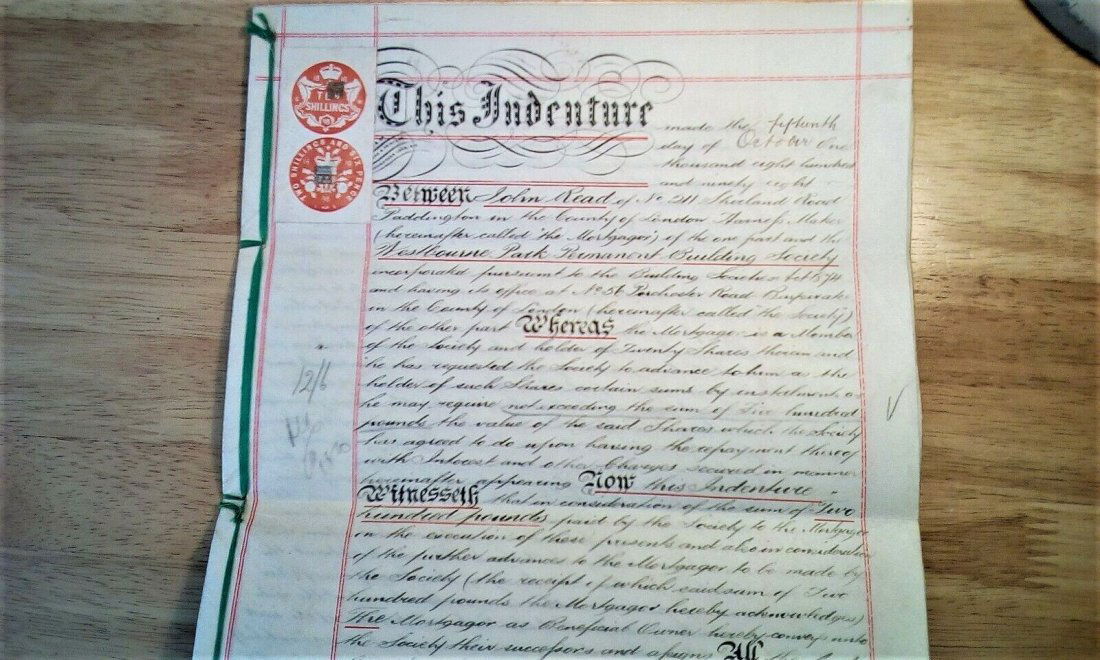 TEN
SHILLINGS
TWO SHILLINGS AND SIX PENCE
This Indenture made the fifteenth
day of October One
thousand eight hundred
and ninety eight
Between John Read of No 211 Road
Paddington in the County of London Harness Maker
(hereinafter called "the Mortgagor") of the one part and the
Westbourne Park Permanent Building Society
incorporated pursuant to the Building Societies Act 1874
and having its office at No 56 Porchester Road Bayswater
in the County of London (hereinafter called the Society)
of the other part Whereas the Mortgagor is a Member
of the Society and holder of Twenty Shares therein and
he has requested the Society to advance to him as the
holder of such Shares certain sums by instalments as
he may require not exceeding the sum of hundred
pounds the value of the said Shares which the Society
has agreed to do upon having the repayment thereof
with Interest and other Charges secured in manner
hereinafter appearing Now this Indenture
Witnesseth that in consideration of the sum of Two
hundred pounds paid by the Society to the Mortgagor
on the execution of these presents and also in consideration
of the further advances to the Mortgagor to be made by
the Society (the receipt of which said sum of Two
hundred pounds the Mortgagor hereby acknowledges)
The Mortgagor as Beneficial Owner hereby conveys unto
the Society their successors and assigns All
12/6